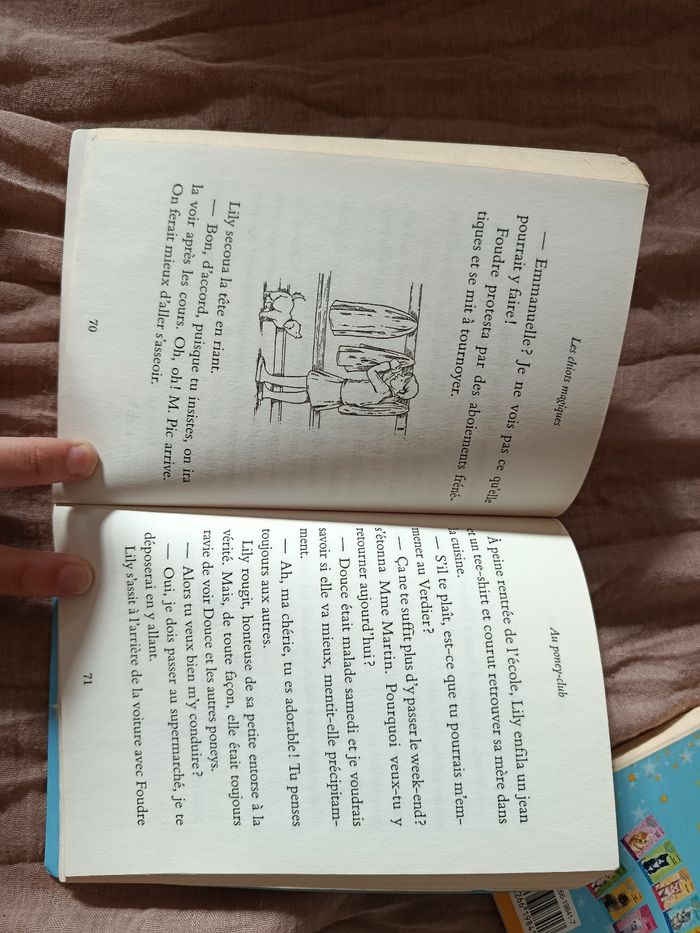 Les chiots magiques
— Emmanuelle ? Je ne vois pas ce qu'elle
pourrait y faire !
Foudre protesta par des aboiements fréné-
tiques et se mit à tournoyer.
Lily secoua la tête en riant.
— Bon, d'accord, puisque tu insistes, on ira
la voir après les cours. Oh, oh ! M. Pic arrive.
On ferait mieux d'aller s'asseoir.
70
Au poney-club
À peine rentrée de l'école, Lily enfila un jean
et un tee-shirt et courut retrouver sa mère dans
la cuisine.
— S'il te plaît, est-ce que tu pourrais m'em-
mener au Verdier ?
— Ça ne te suffit plus d'y passer le week-end ?
s'étonna Mme Martin. Pourquoi veux-tu y
retourner aujourd'hui ?
— Douce était malade samedi et je voudrais
savoir si elle va mieux, mentit-elle précipitam-
ment.
— Ah, ma chérie, tu es adorable ! Tu penses
toujours aux autres.
Lily rougit, honteuse de sa petite entorse à la
vérité. Mais, de toute façon, elle était toujours
ravie de voir Douce et les autres poneys.
— Alors tu veux bien m'y conduire ?
— Oui, je dois passer au supermarché, je te
déposerai en y allant.
Lily s'assit à l'arrière de la voiture avec Foudre
71
266-19841-7